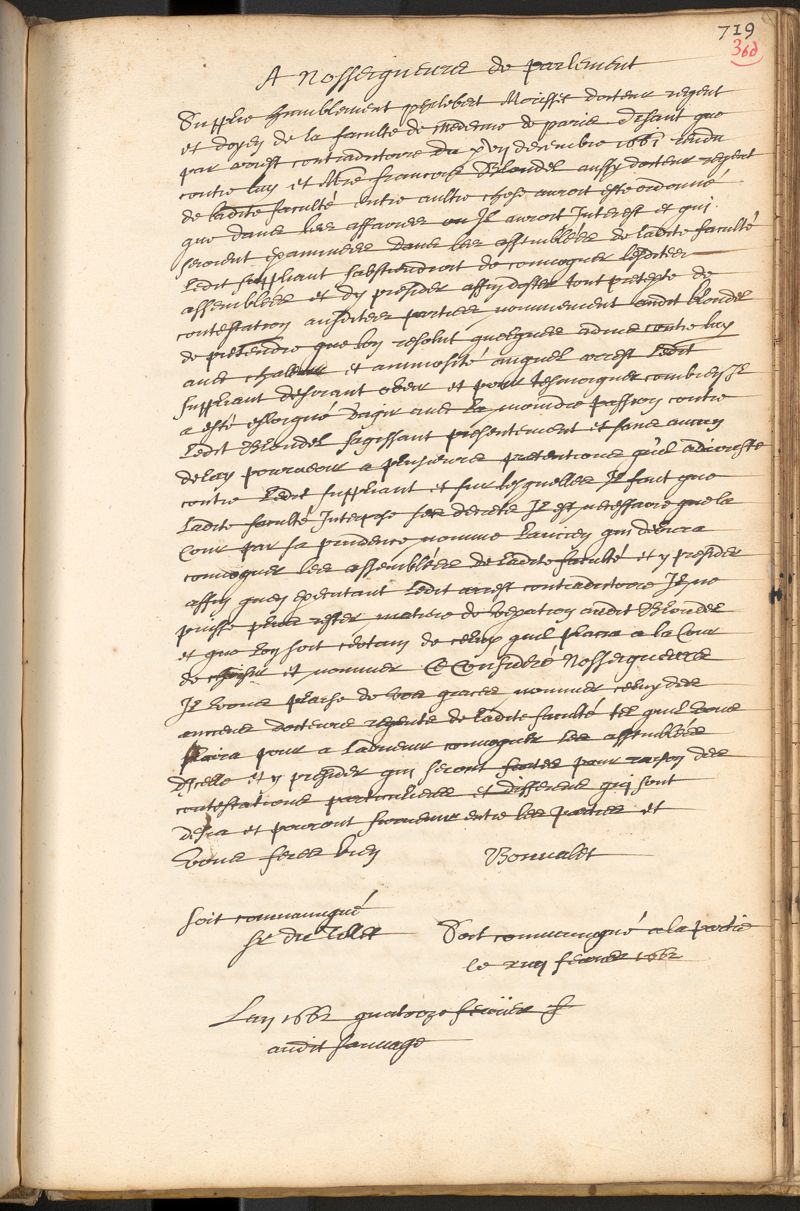 719
360
A Nosseigneurs de parlement
Supplie humblement philebert Morisset docteur regent
et doyen de la faculté de medecine de paris disant que
par arrest contradictoire du decembre 1661 rendu
contre luy et Mre francois Blondel aussy docteur regent
de ladite faculté entre aultre chose auroit esté ordonné
que dans les affaires ou Il auroit Interest et qui
seroient examinees dans les assemblées de ladite faculté
Ledit suppliant sabstiendroit de convoquer lesdites
assemblées et dy presider affin doster tout pretexte de
contestation ausdites parties nommement audit blondel
de pretendre que lon resolut quelques advis contre luy
avec chaleur et animosité auquel arrest Ledit
suppliant desirant obeir et pour tesmoigner combien Il
a esté esloigné dagir avec la moindre passion contre
Ledit Blondel sagissant presentement et sans aucun
delay pourveoir a plusieurs pretentions quil
contre Ledit suppliant et sur lesquelles Il faut que
Ladite faculté Interpose ses decrets Il est necessaire que la
Cour par sa prudence nomme Lancien qui devra
convoquer les assemblées de ladite faculté et y presider
affin quen executant Ledit arrest contradictoire Il ne
puisse plus rester matiere de vexation audit Blondel
et que lon soit certain de celuy quil plaira a la Cour
de choisir et nommer Ce Consideré Nosseigneurs
Il vous plaise de vos graces nommer celuy des
anciens docteurs regents de ladite faculté tel quil vous
plaira pour a Ladvenir convoquer les assemblées
Dicelle et y presider qui seront faites pour raison des
contestations particulieres et differens qui sont
desia et pouront survenir entre les parties et
vous ferez bien Bonvalet
Soit communiqué
Sr du Tillet
Soit communiqué a la partie
le xiii fevrier 1662
Lan 1662 quatorze fevrier
audit sauvage